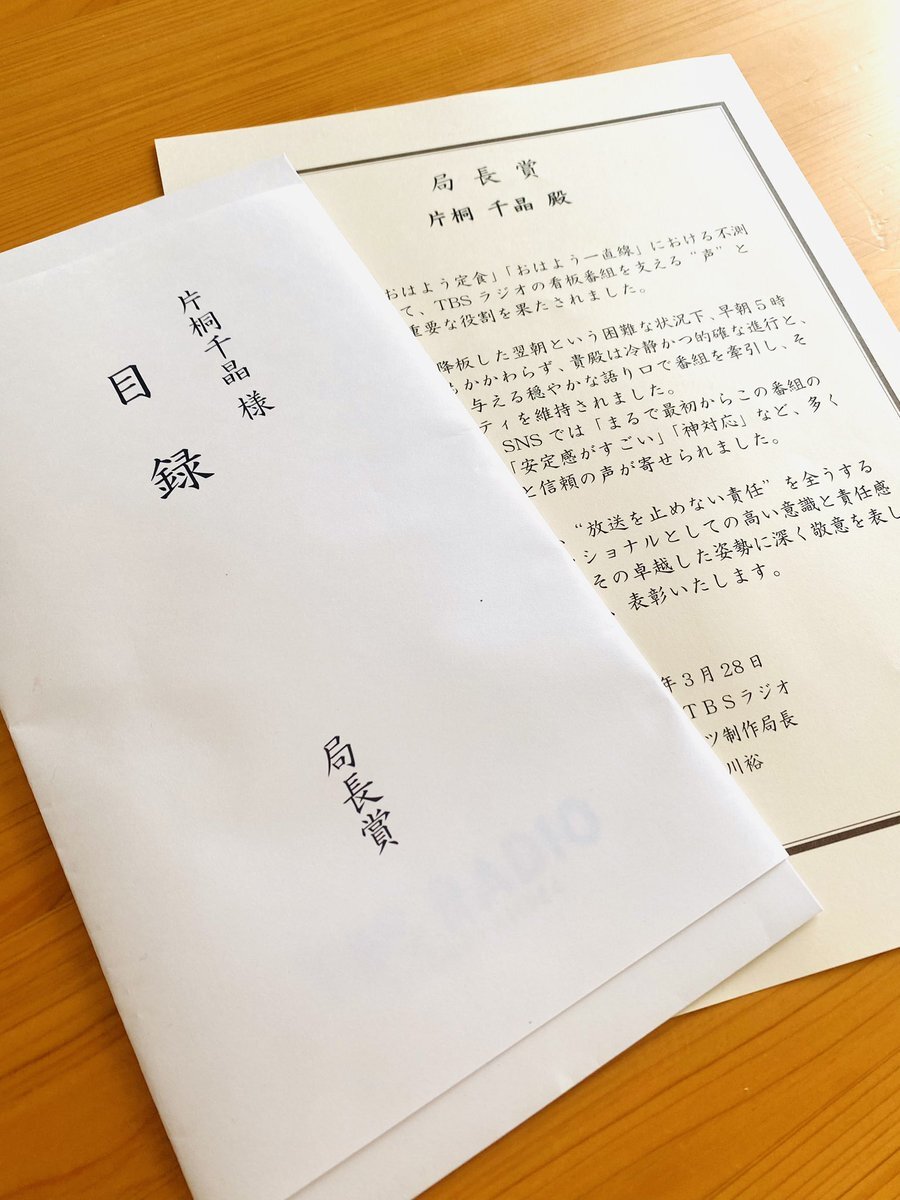 片桐千晶 様
目録
局長賞
局長賞
片桐 千晶 殿
おはよう定食」「おはよう一直線」における不測
て、TBSラジオの看板番組を支える“声”と
重要な役割を果たされました。
降板した翌朝という困難な状況下、早朝5時
もかかわらず、貴殿は冷静かつ的確な進行と、
与える穏やかな語り口で番組を牽引し、そ
ティを維持されました。
SNSでは「まるで最初からこの番組の
「安定感がすごい」「神対応」など、多く
と信頼の声が寄せられました。
“放送を止めない責任”を全うする
ショナルとしての高い意識と責任感
その卓越した姿勢に深く敬意を表し
、表彰いたします。
年3月28日
TBSラジオ
ツ制作局長
川裕